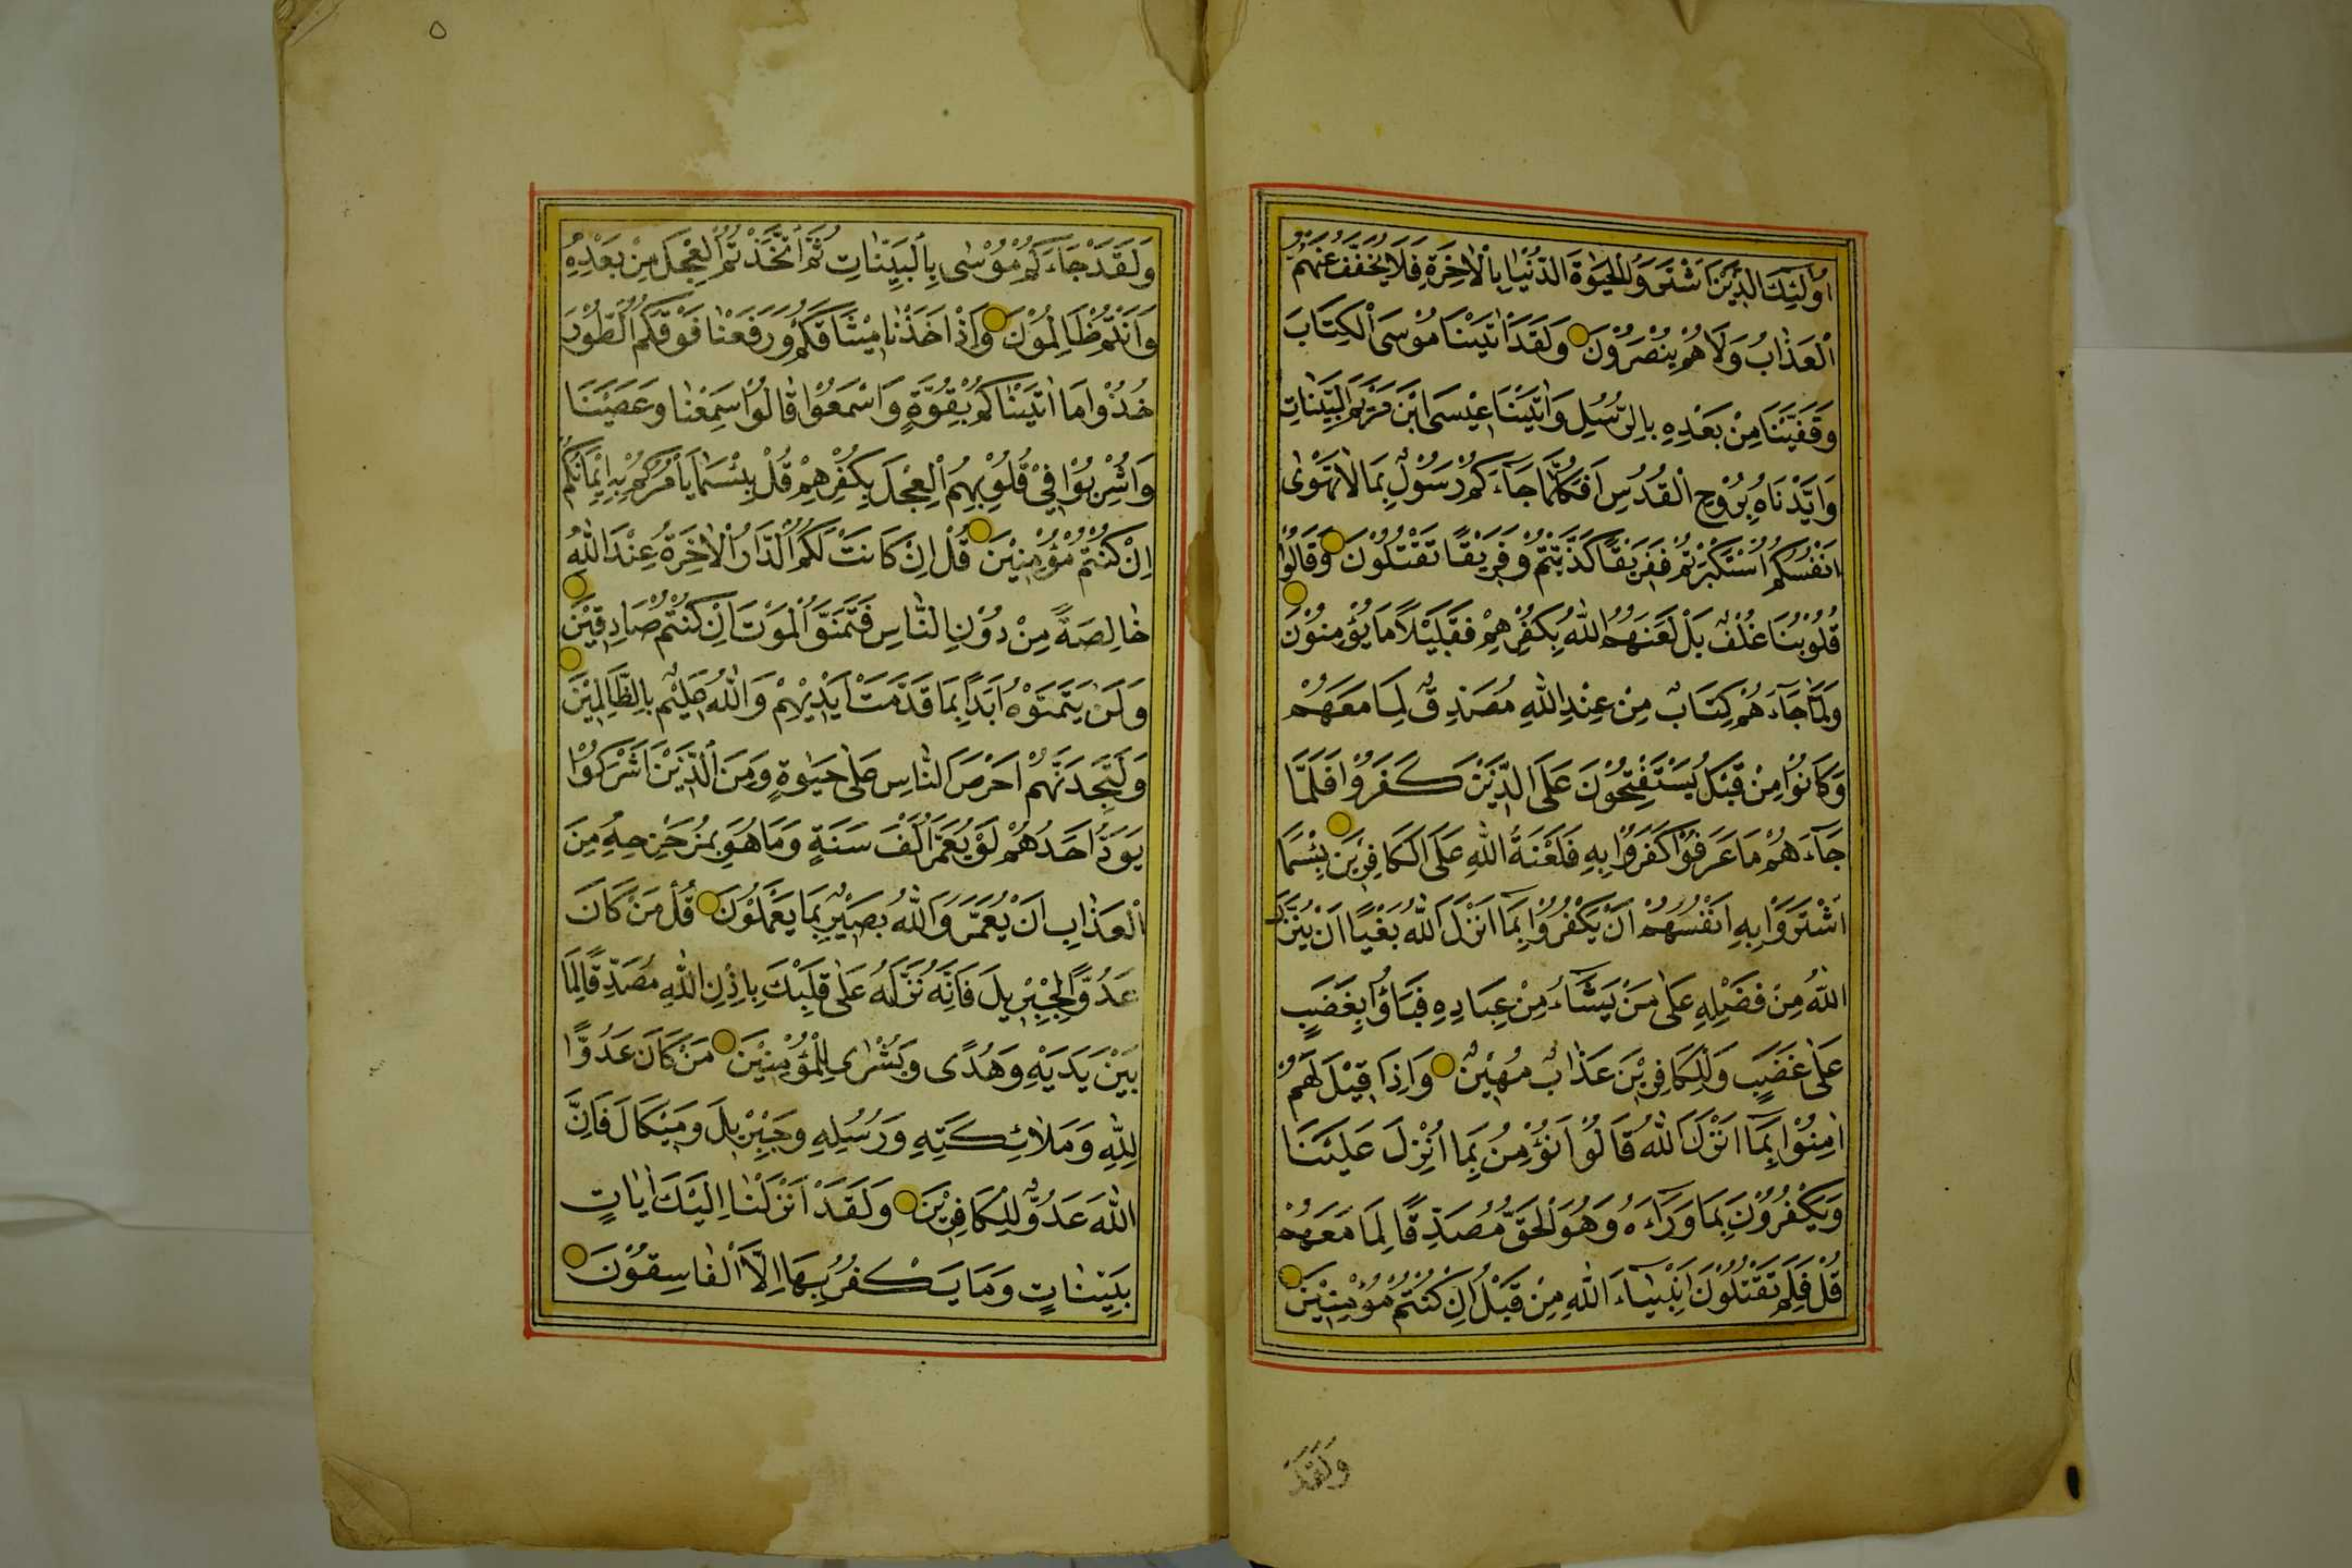 اُولٰئِكَ الَّذِيْنَ اشْتَرَوُا الْحَيٰوةَ الدُّنْيَا بِالْاٰخِرَةِ فَلَا يُخَفَّفُ عَنْهُمُ
الْعَذَابُ وَلَا هُمْ يُنْصَرُوْنَ وَلَقَدْ اٰتَيْنَا مُوْسَى الْكِتَابَ
وَقَفَّيْنَا مِنْ بَعْدِهِ بِالرُّسُلِ وَاٰتَيْنَا عِيْسَى ابْنَ مَرْيَمَ الْبَيِّنَاتِ
وَاَيَّدْنَاهُ بِرُوْحِ الْقُدُسِ اَفَكُلَّمَا جَآءَكُمْ رَسُوْلٌ بِمَا لَا تَهْوٰى
اَنْفُسُكُمُ اسْتَكْبَرْتُمْ فَفَرِيْقًا كَذَّبْتُمْ وَفَرِيْقًا تَقْتُلُوْنَ وَقَالُوْا
قُلُوْبُنَا غُلْفٌ بَلْ لَعَنَهُمُ اللّٰهُ بِكُفْرِهِمْ فَقَلِيْلًا مَا يُؤْمِنُوْنَ
وَلَمَّا جَآءَهُمْ كِتَابٌ مِنْ عِنْدِ اللّٰهِ مُصَدِّقٌ لِمَا مَعَهُمْ
وَكَانُوْا مِنْ قَبْلُ يَسْتَفْتِحُوْنَ عَلَى الَّذِيْنَ كَفَرُوْا فَلَمَّا
جَآءَهُمْ مَا عَرَفُوْا كَفَرُوْا بِهِ فَلَعْنَةُ اللّٰهِ عَلَى الْكَافِرِيْنَ بِئْسَمَا
اشْتَرَوْا بِهِ اَنْفُسَهُمْ اَنْ يَكْفُرُوْا بِمَا اَنْزَلَ اللّٰهُ بَغْيًا اَنْ يُنَزِّلَ
اللّٰهُ مِنْ فَضْلِهِ عَلٰى مَنْ يَشَآءُ مِنْ عِبَادِهِ فَبَاؤُا بِغَضَبٍ
عَلٰى غَضَبٍ وَلِلْكَافِرِيْنَ عَذَابٌ مُهِيْنٌ وَاِذَا قِيْلَ لَهُمْ
اٰمِنُوْا بِمَا اَنْزَلَ اللّٰهُ قَالُوْا نُؤْمِنُ بِمَا اُنْزِلَ عَلَيْنَا
وَيَكْفُرُوْنَ بِمَا وَرَآءَهُ وَهُوَ الْحَقُّ مُصَدِّقًا لِمَا مَعَهُمْ
قُلْ فَلِمَ تَقْتُلُوْنَ اَنْبِيَآءَ اللّٰهِ مِنْ قَبْلُ اِنْ كُنْتُمْ مُؤْمِنِيْنَ
وَلَقَدْ
٥
وَلَقَدْ جَآءَكُمْ مُوْسٰى بِالْبَيِّنَاتِ ثُمَّ اتَّخَذْتُمُ الْعِجْلَ مِنْ بَعْدِهِ
وَاَنْتُمْ ظَالِمُوْنَ وَاِذْ اَخَذْنَا مِيْثَاقَكُمْ وَرَفَعْنَا فَوْقَكُمُ الطُّوْرَ
خُذُوْا مَا اٰتَيْنَاكُمْ بِقُوَّةٍ وَاسْمَعُوْا قَالُوْا سَمِعْنَا وَعَصَيْنَا
وَاُشْرِبُوْا فِيْ قُلُوْبِهِمُ الْعِجْلَ بِكُفْرِهِمْ قُلْ بِئْسَمَا يَاْمُرُكُمْ بِهِ اِيْمَانُكُمْ
اِنْ كُنْتُمْ مُؤْمِنِيْنَ قُلْ اِنْ كَانَتْ لَكُمُ الدَّارُ الْاٰخِرَةُ عِنْدَ اللّٰهِ
خَالِصَةً مِنْ دُوْنِ النَّاسِ فَتَمَنَّوُا الْمَوْتَ اِنْ كُنْتُمْ صَادِقِيْنَ
وَلَنْ يَتَمَنَّوْهُ اَبَدًا بِمَا قَدَّمَتْ اَيْدِيْهِمْ وَاللّٰهُ عَلِيْمٌ بِالظَّالِمِيْنَ
وَلَتَجِدَنَّهُمْ اَحْرَصَ النَّاسِ عَلٰى حَيٰوةٍ وَمِنَ الَّذِيْنَ اَشْرَكُوْا
يَوَدُّ اَحَدُهُمْ لَوْ يُعَمَّرُ اَلْفَ سَنَةٍ وَمَا هُوَ بِمُزَحْزِحِهِ مِنَ
الْعَذَابِ اَنْ يُعَمَّرَ وَاللّٰهُ بَصِيْرٌ بِمَا يَعْمَلُوْنَ قُلْ مَنْ كَانَ
عَدُوًّا لِجِبْرِيْلَ فَاِنَّهُ نَزَّلَهُ عَلٰى قَلْبِكَ بِاِذْنِ اللّٰهِ مُصَدِّقًا لِمَا
بَيْنَ يَدَيْهِ وَهُدًى وَبُشْرٰى لِلْمُؤْمِنِيْنَ مَنْ كَانَ عَدُوًّا
لِلّٰهِ وَمَلٰائِكَتِهِ وَرُسُلِهِ وَجِبْرِيْلَ وَمِيْكَالَ فَاِنَّ
اللّٰهَ عَدُوٌّ لِلْكَافِرِيْنَ وَلَقَدْ اَنْزَلْنَا اِلَيْكَ اٰيَاتٍ
بَيِّنَاتٍ وَمَا يَكْفُرُ بِهَا اِلَّا الْفَاسِقُوْنَ